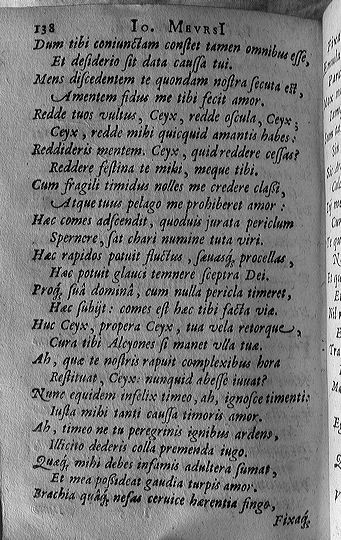 138 IO. MEVRSI
Dum tibi coniunctam constet tamen omnibus esse,
Et desiderio sit data caussa tui.
Mens discedentem te quondam nostra secuta est,
Amentem fidus me tibi fecit amor.
Redde tuos vultus, Ceyx, redde oscula, Ceyx;
Ceyx, redde mihi quicquid amantis habes.
Reddideris mentem. Ceyx, quid reddere cessas?
Reddere festina te mihi, meque tibi.
Cum fragili timidus nolles me credere classi,
Atque tuus pelago me prohiberet amor:
Hæc comes adscendit, quoduis iurata periclum
Spernere, sat chari numine tuta viri.
Hæc rapidos potuit fluctus, sæuasq́; procellas,
Hæc potuit glauci temnere sceptra Dei.
Proq́; suâ dominâ, cum nulla pericla timeret,
Hæc subijt: comes est hæc tibi facta viæ.
Huc Ceyx, propera Ceyx, tua vela retorque,
Cura tibi Alcyones si manet vlla tuæ.
Ah, quæ te nostris rapuit complexibus hora
Restituat, Ceyx: nunquid abesse iuuat?
Nunc equidem infelix timeo, ah, ignosce timenti:
Iusta mihi tanti caussa timoris amor.
Ah, timeo ne tu peregrinis ignibus ardens,
Illicito dederis colla premenda iugo.
Quæq́; mihi debes infamis adultera sumat,
Et mea possideat gaudia turpis amor.
Brachia quâq́; nefas ceruice hærentia fingo,
Fixaq́;